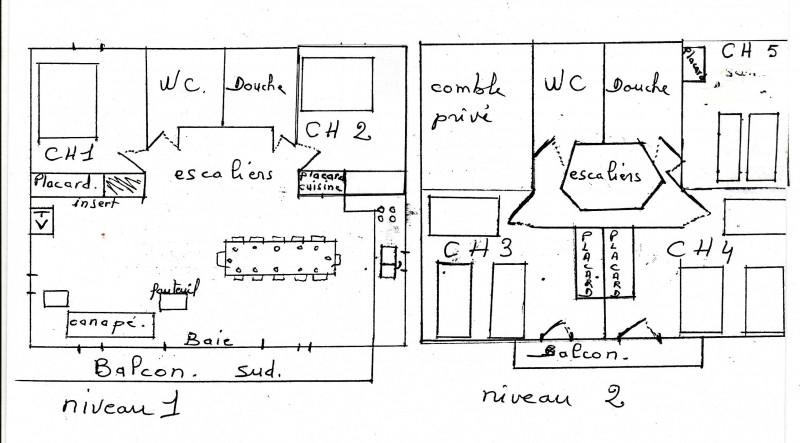 WC.
Douche
CH1
CH 2
Placard.
insert
escaliers
placard
cuisine
TV
fauteuil
canapé.
Baie
Balcon. sud.
niveau 1
comble
privé
WC
Douche
placard
CH 5
escaliers
CH 3
PLACARD
PLACARD
CH4
Balcon.
niveau 2